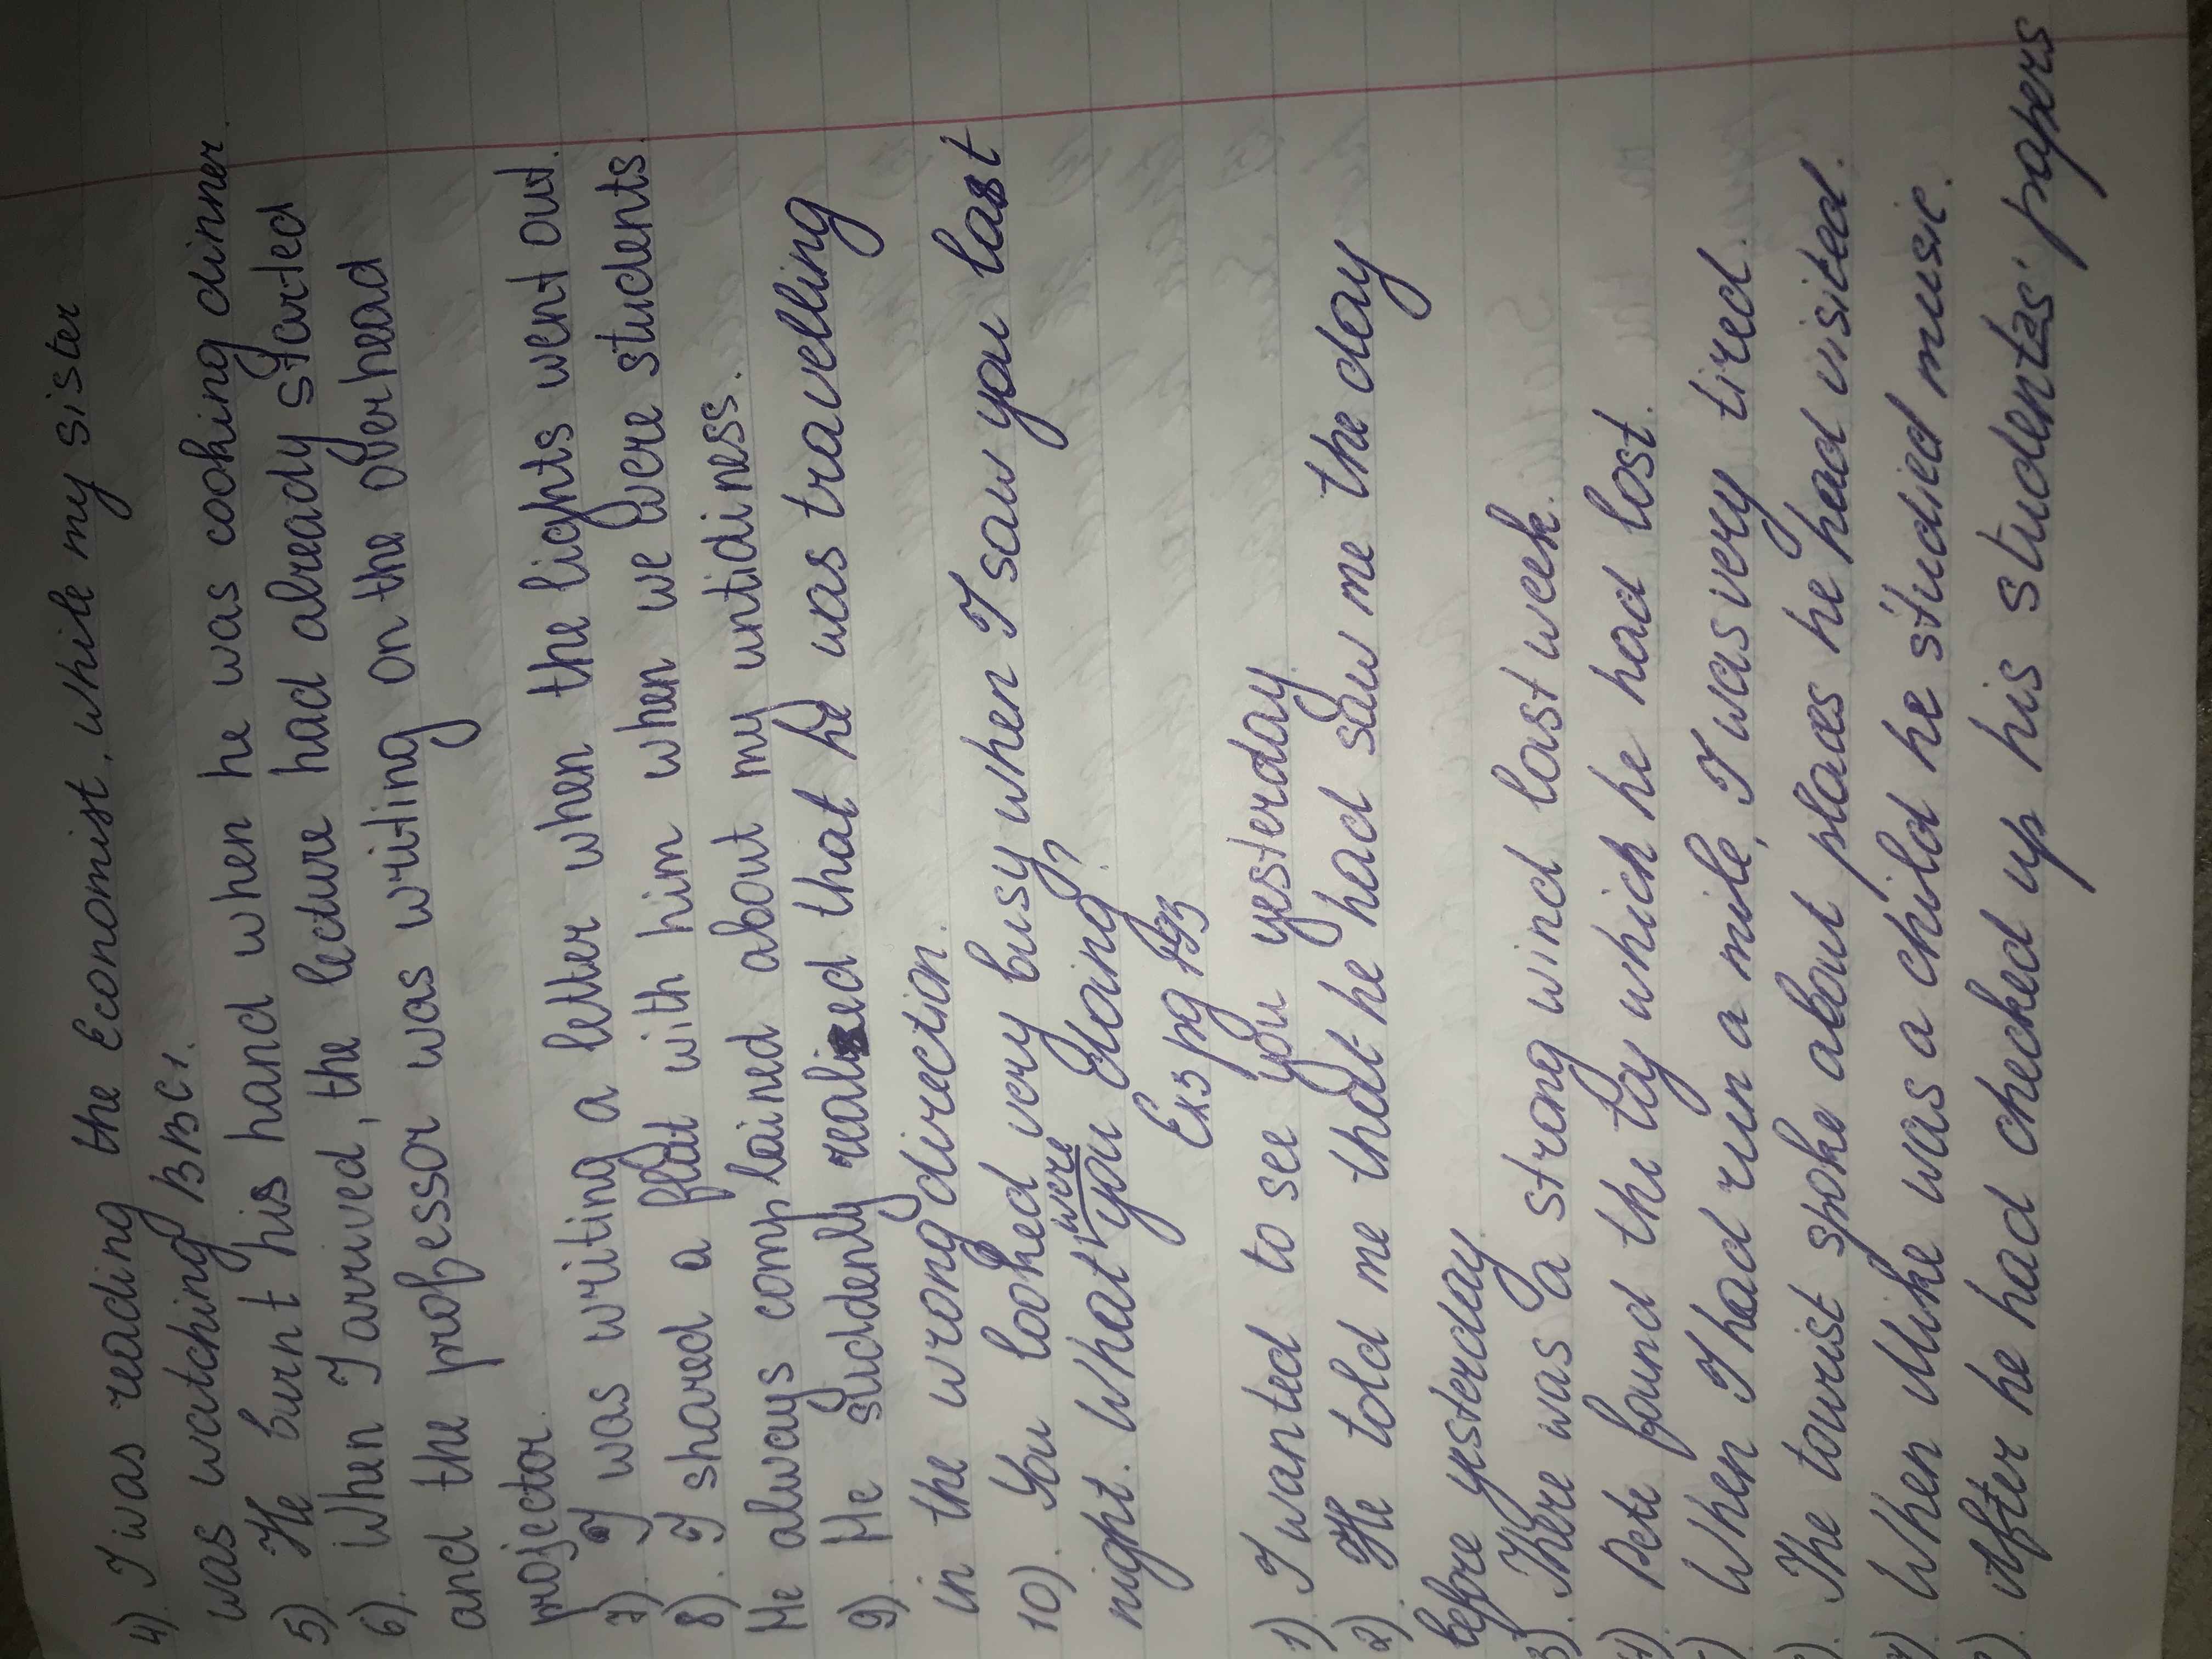 4). I was reading the Economist, while my sister
was watching BBC1.
5) He burnt his hand when he was cooking dinner.
6). When I arrived, the lecture had already started
and the professor was writing on the overhead
projector.
7). I was writing a letter when the lights went out.
8). I shared a flat with him when we were students.
He always complained about my untidiness.
9). He suddenly realised that he was travelling
in the wrong direction.
10). You looked very busy when I saw you last
night. What were you doing?
Ex3 pg 193
1) I wanted to see you yesterday.
2) He told me that he had saw me the day
before yesterday.
3). There was a strong wind last week.
4) Pete found the toy which he had lost.
) When I had run a mile, I was very tired.
). The tourist spoke about places he had visited.
) When Mike was a child he studied music.
) After he had checked up his students' papers